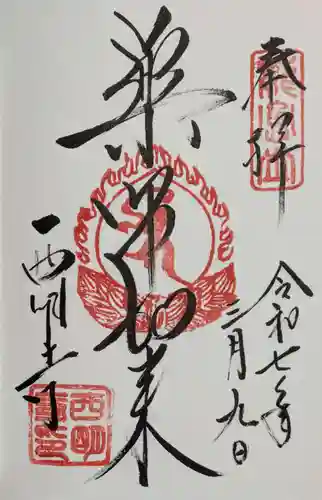 奉拝
令和七年
三月九日
薬師如来
西明寺